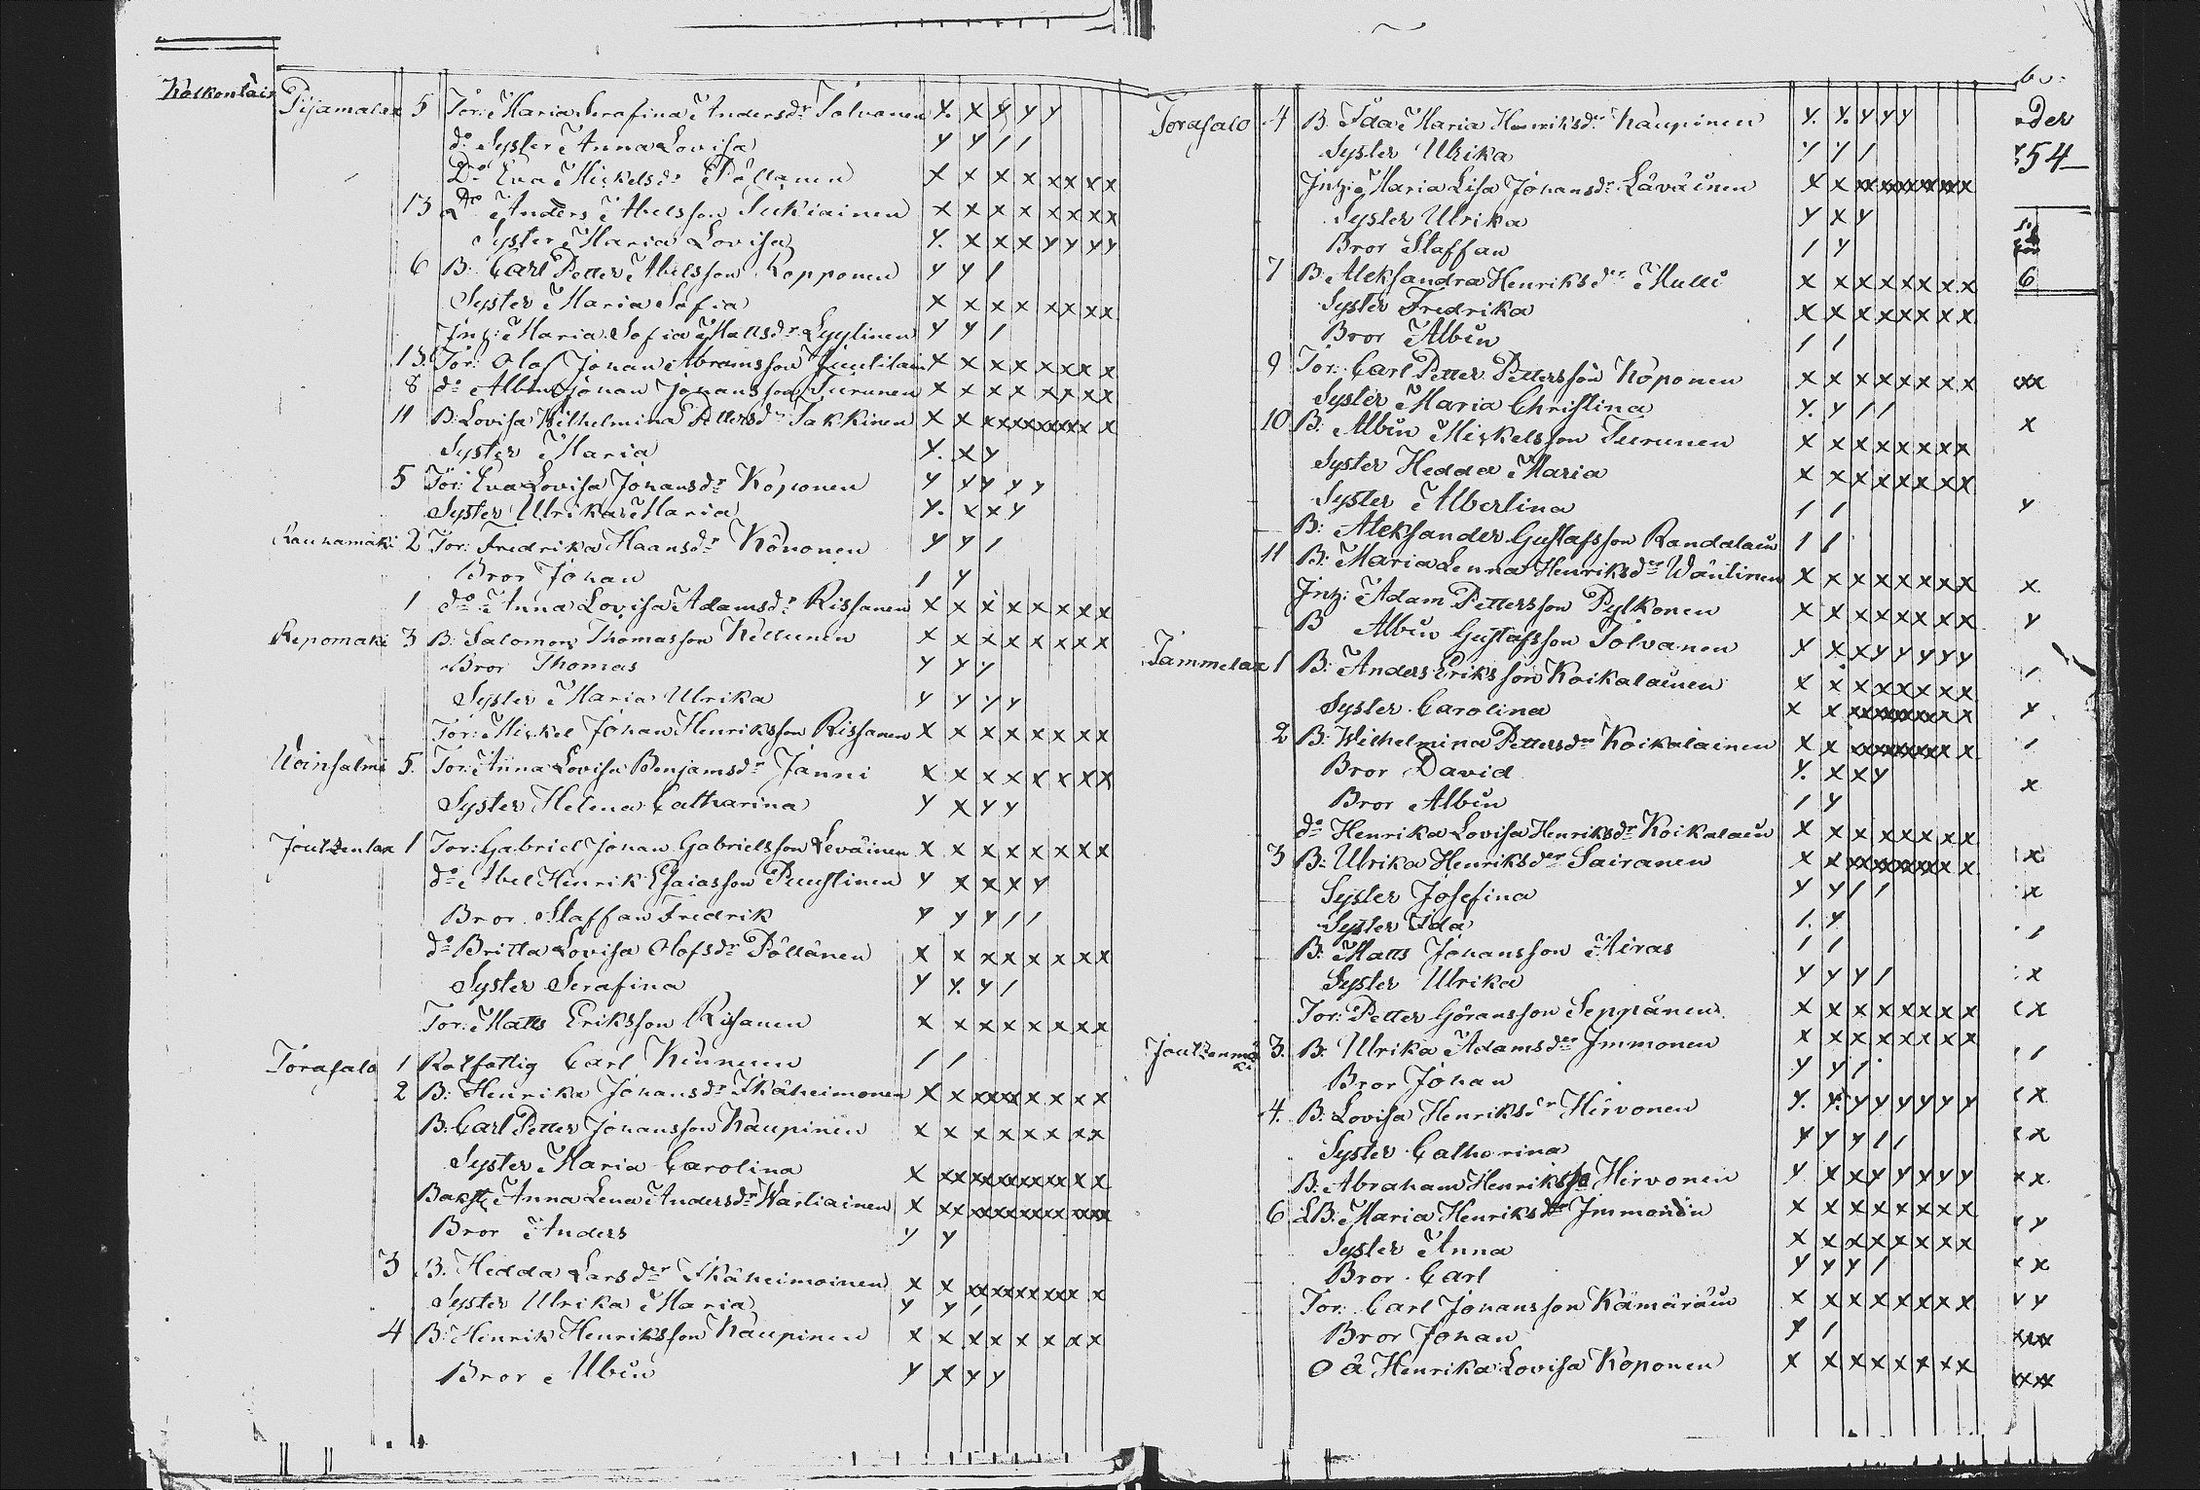 Kolkontais
Pisamalax 5 Tor: Maria Serafina Andersdr Tolvanen y. x y y y
do Syster Anna Lovisa y y / /
Do Eva Mickelsdr Pöllänen x x x x x x x x
13 Do Anders Abelsson Sukiainen x x x x x x x x
Syster Maria Lovisa y. x x x y y y y
6 B: Carl Petter Abelsson Ropponen y y /
Syster Maria Sofia x x x x x x x x
Inh: Maria Sofia Mattsdr Lyytinen y y /
13. Tor: Olof Johan Abramsson Juutilain x x x x x x x x
8 do Albin Johan Johansson Turunen x x x x x x x x
11 B: Lovisa Wilhelmina Pettersdr Sakkinen x x xxxxxxxx x
Syster Maria y. x y
5 Tor: Eva Lovisa Johansdr Koponen y y y y y
Syster Ulrika Maria y. x x y
Rauhamäki 2 Tor: Fredrika Haansdr Könonen y y /
Bror Johan / y
1 do Anna Lovisa Adamsdr Rissanen x x x x x x x x
Repomäki 3 B: Salomon Thomasson Kellunen x x x x x x x x
Bror Thomas y y y
Syster Maria Ulrika y y y y
Tor: Mickel Johan Henriksson Rissanen x x x x x x x x
Voinsalmi 5. Tor: Anna Lovisa Benjamsdr Janni x x x x x x x x
Syster Helena Catharina y x y y
Joutzenlax 1 Tor: Gabriel Johan Gabrielsson Leväinen x x x x x x x x
do Abel Henrik Esaiasson Puustinen y x x x y
Bror Staffan Fredrik y y y / /
do Britta Lovisa Olofsdr Pöllänen x x x x x x x x
Syster Serafina y y. y /
Tor: Matts Eriksson Rissanen x x x x x x x x
Torasalo 1 Rotfattig Carl Kinnunen / /
2 B: Henrika Johansdr Ikäheimonen x x xxxx x x x x
B: Carl Petter Johansson Kaupinen x x x x x x x x
Syster Maria Carolina x xxxxxxxx x x
Anna Lena Andersdr Wartiainen x xx xxxxxxxx xxx
Bror Anders y y
3 B. Hedda Larsdr Ikäheimoinen x x xxxxxxxx x
Syster Ulrika Maria y y /
4 B: Henrik Henriksson Kaupinen x x x x x x x x
Bror Albin y x y y
Torasalo 4 B. Ida Maria Henriksdr Kaupinen y. y. y y y
Syster Ulrika y y /
Inh: Maria Lisa Johansdr Läväinen x x xxxxxxxxx
Syster Ulrika y x y
Bror Staffan / y
7 B: Aleksandra Henriksdr Mulli x x x x x x x x
Syster Fredrika x x x x x x x x
Bror Albin / /
9 Tor: Carl Petter Pettersson Koponen x x x x x x x x
Syster Maria Christina y. y / /
10 B: Albin Mickelsson Turunen x x x x x x x x
Syster Hedda Maria x x x x x x x x
Syster Albertina / /
B: Aleksander Gustafsson Randalain / /
11 B: Maria Lenna Henriksdr Wäntinen x x x x x x x x
Inh: Adam Pettersson Pylkonen x x x x x x x x
B Albin Gustafsson Tolvanen y x x y y y y y
Tammelax 1 B: Anders Eriksson Koikalainen x x x x x x x x
Syster Carolina x x xxxxxxx x x
2 B: Wilhelmina Pettersdr Koikalainen x x xxxxxxx x x
Bror David y. x x y
Bror Albin / y
do Henrika Lovisa Henriksdr Koikalain x x x x x x x x
3 B: Ulrika Henriksdr Sairanen x x xxxxxxx x x
Syster Josefina y y / /
Syster Ida /. y
B: Matts Johansson Airas / /
Syster Ulrika y y y /
Tor: Petter Göransson Seppänen x x x x x x x x
Joutzenmäki 3. B: Ulrika Adamsdr Immonen x x x x x x x x
Bror Johan y y /
4. B: Lovisa Henriksdr Hirvonen y. y. y y y y y y
Syster Catharina y y y / /
B: Abraham Henriks Hirvonen y x x y y y y y
6 LB: Maria Henriksdr Immonen x x x x x x x x
Syster Anna x x x x x x x x
Bror Carl y y y /
Tor: Carl Johansson Kämäräin x x x x x x x x
Bror Johan y /
O ä Henrika Lovisa Koponen x x x x x x x x
der
54
6